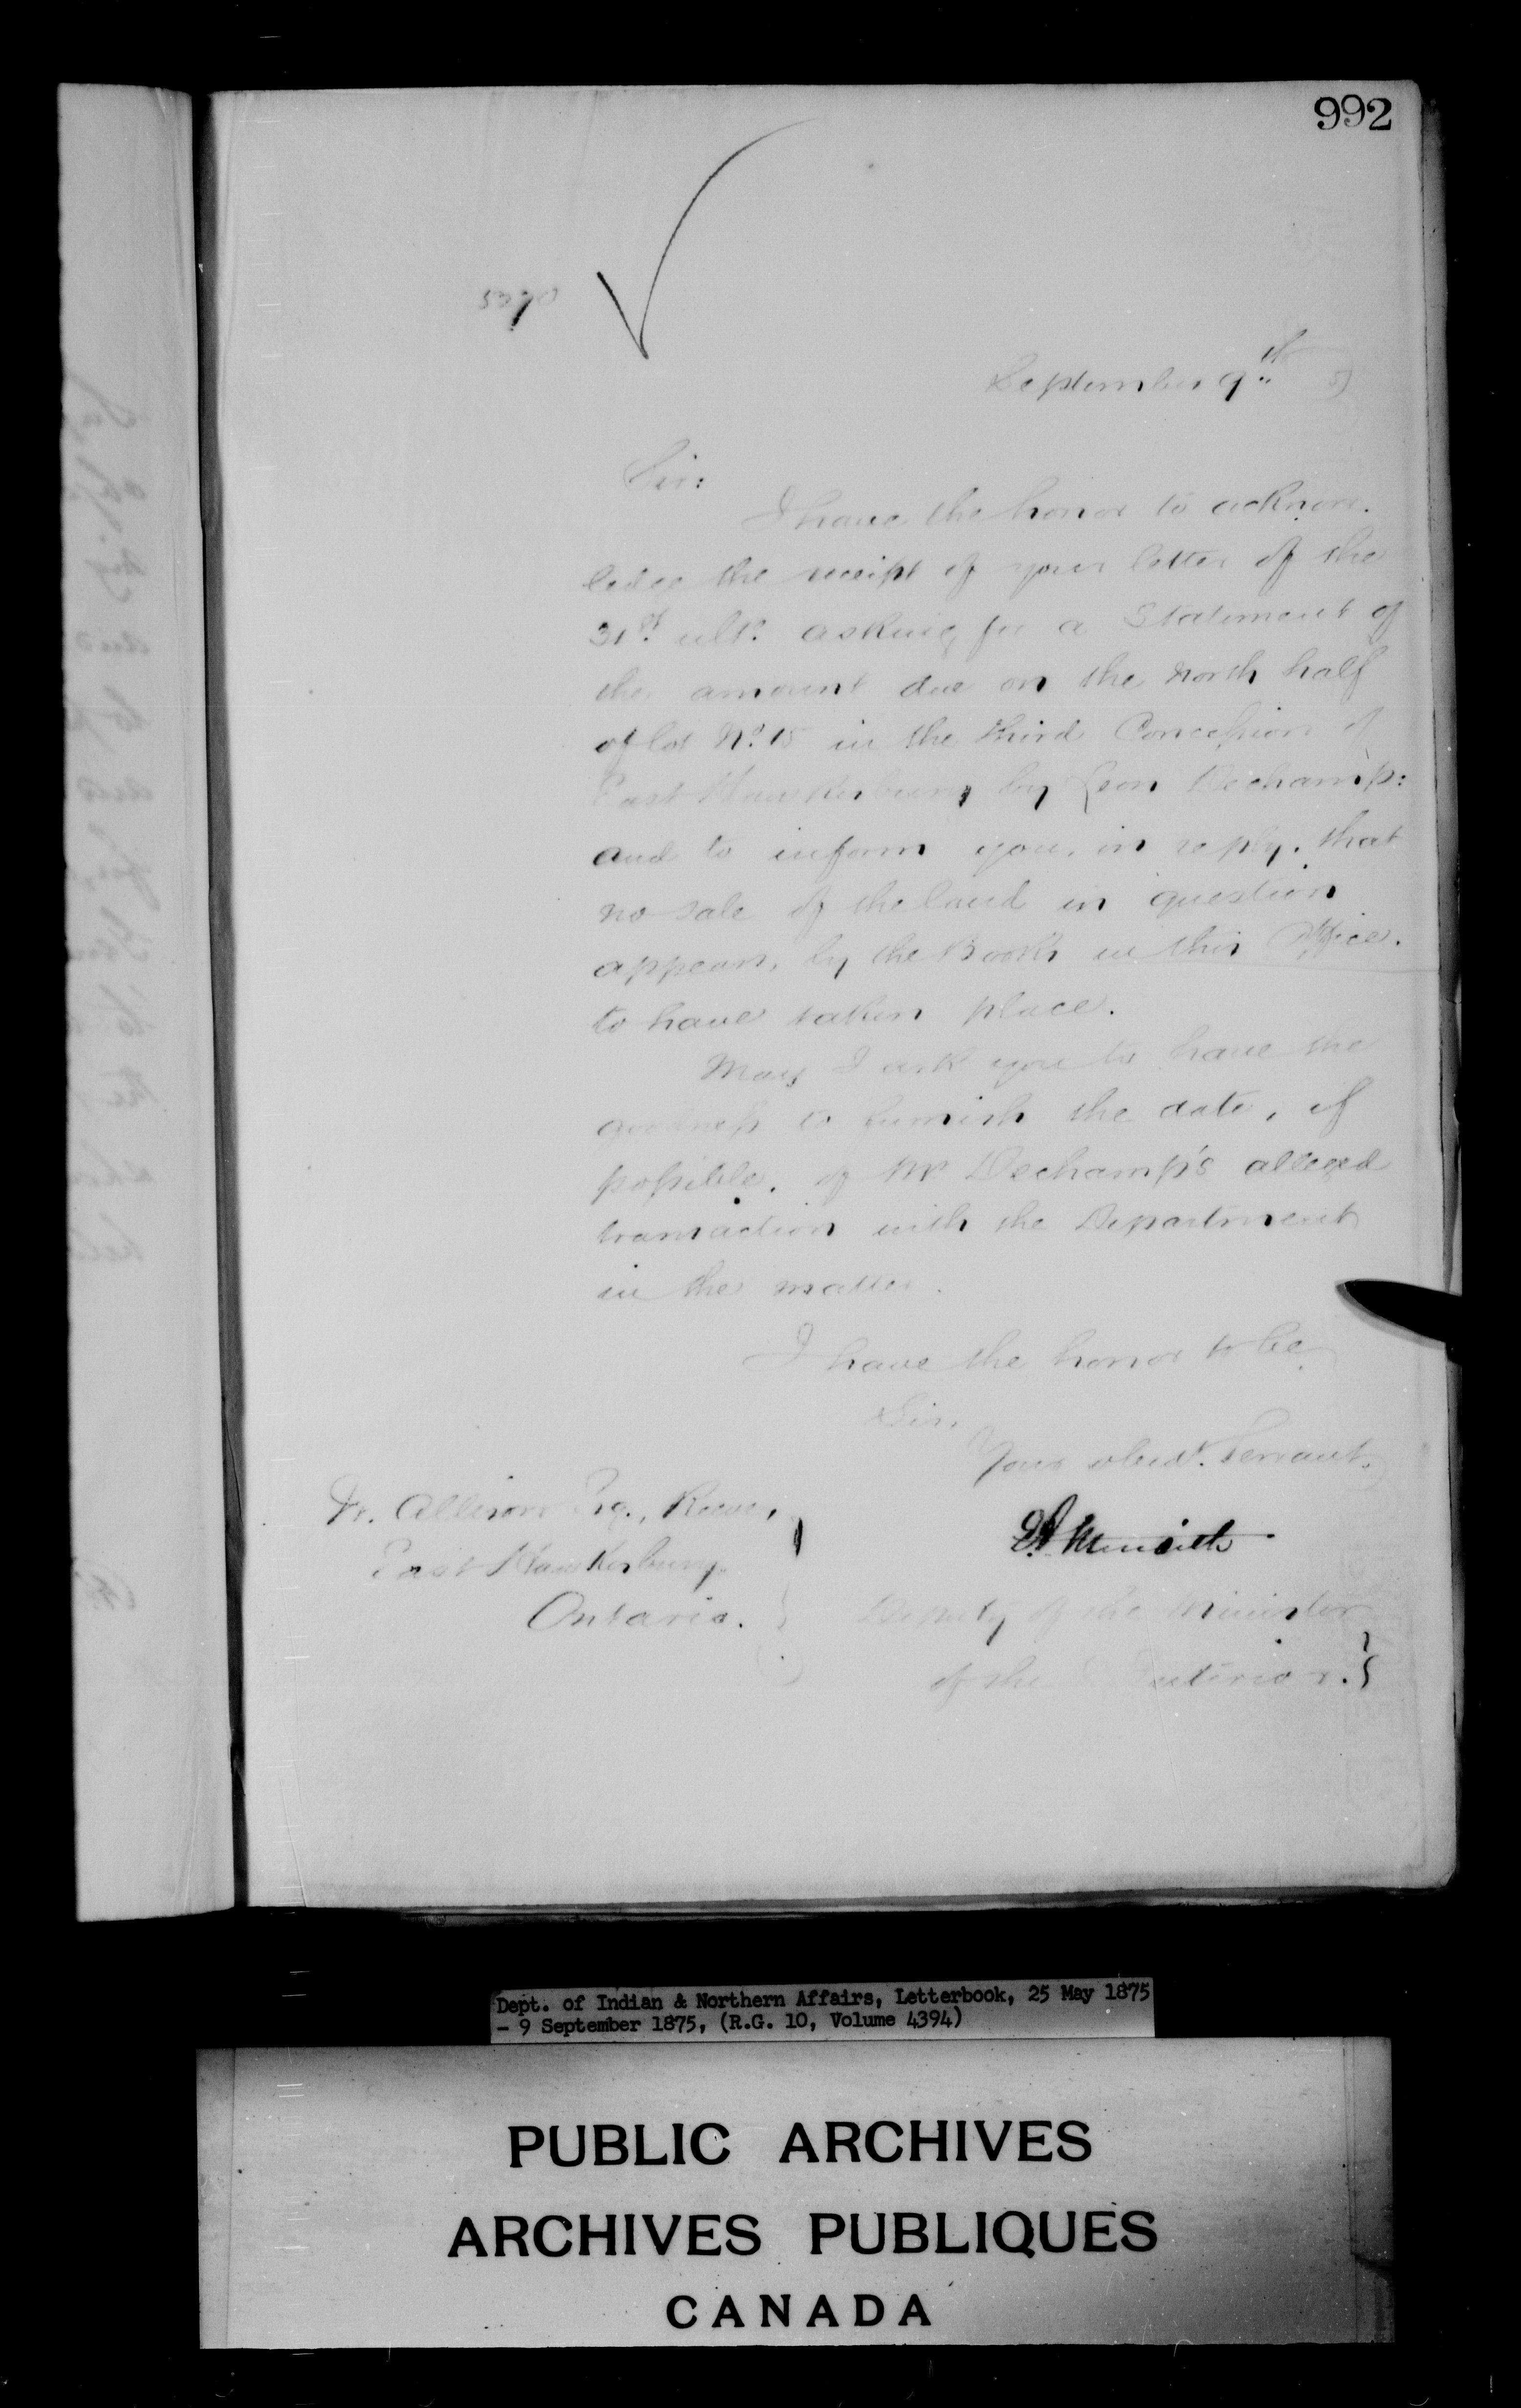 992
5390
September 9th 5
Sir:
I have the honor to acknow-
ledge the receipt of your letter of the
31st ulto. asking for a Statement of
the amount due on the north half
of lot No. 15 in the third Concession of
East Hawkesbury by Leon Dechamp:
and to inform you, in reply, that
no sale of the land in question
appears, by the Books in this Office.
to have taken place.
May I ask you to have the
goodness to furnish the date, if
possible, of Mr Dechamp's alleged
transaction with the Department
in the matter.
I have the honor to be
Sir,
Your obedt. Servant.
Allison Esq., Reeve,
East Hawkesbury
Ontario.
Deputy of the Minister
of the Interior.
Dept. of Indian & Northern Affairs, Letterbook, 25 May 1875
- 9 September 1875, (R.G. 10, Volume 4394)
PUBLIC ARCHIVES
ARCHIVES PUBLIQUES
CANADA